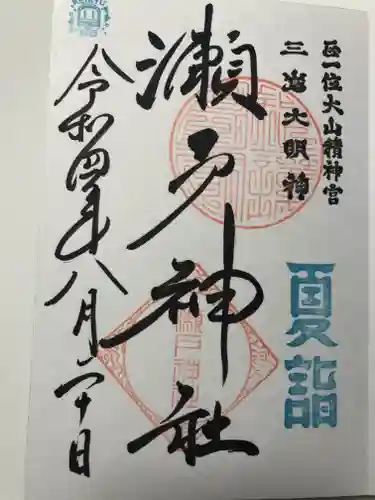 正一位大山積神宮
三嶌大明神
夏詣
瀬戸神社
令和四年八月二十日